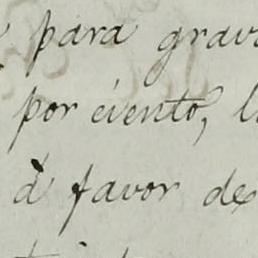 para grav
por ciento, l
á favor de